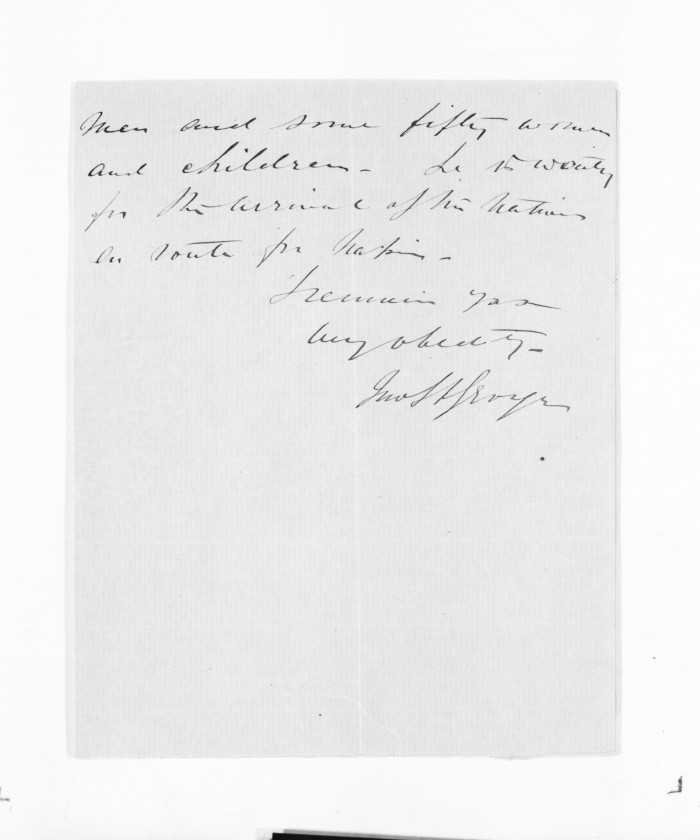 men and some fifty women
and children - He is waiting
for the arrival of the natives
en route for Napier -
I remain yrs
very obedtly -
Jno St George